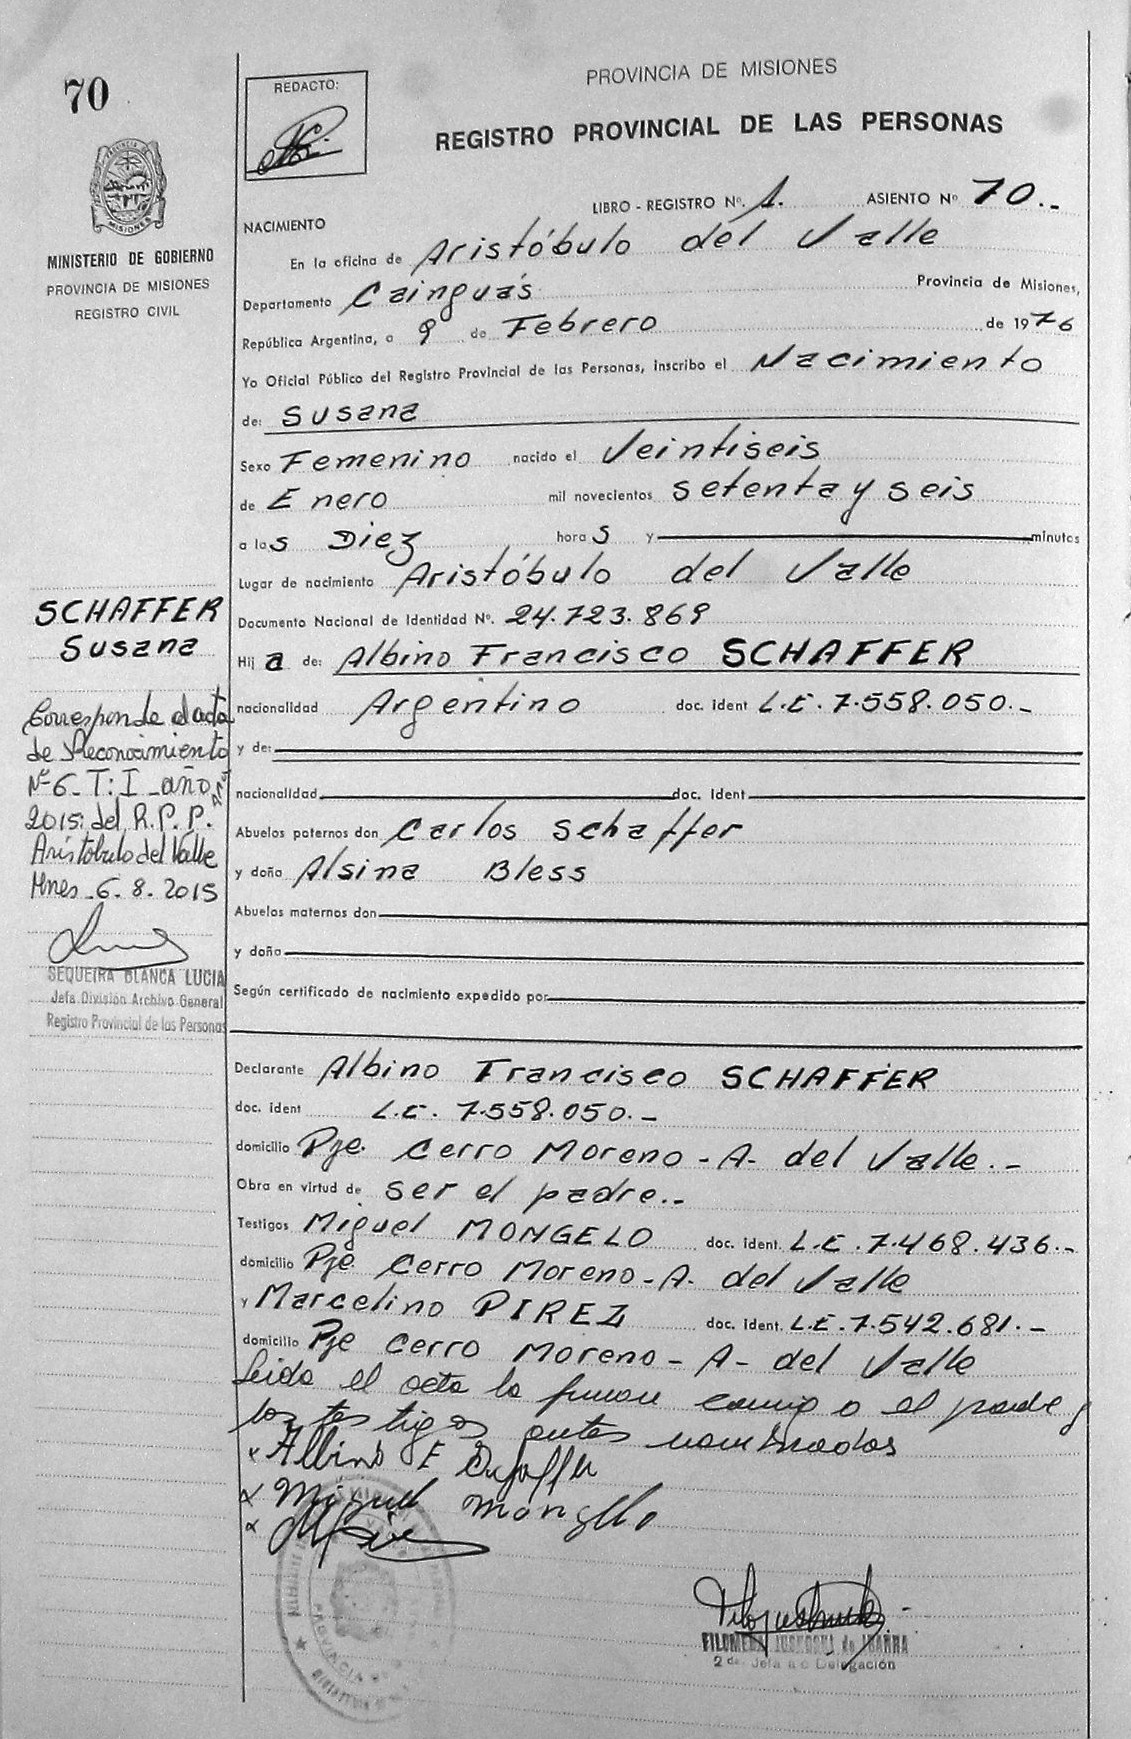 70
REDACTO:
PROVINCIA DE MISIONES
REGISTRO PROVINCIAL DE LAS PERSONAS
LIBRO - REGISTRO Nº. 1. ASIENTO Nº 70.-
PROVINCIA DE
MISIONES
MINISTERIO DE GOBIERNO
PROVINCIA DE MISIONES
REGISTRO CIVIL
NACIMIENTO
En la oficina de Aristóbulo del Valle
Departamento Cainguás Provincia de Misiones,
República Argentina, a 9 de Febrero de 1976
Yo Oficial Público del Registro Provincial de las Personas, inscribo el Nacimiento
de: Susana
Sexo Femenino nacido el Veintiseis
de Enero mil novecientos setenta y seis
a las Diez horas y minutos
Lugar de nacimiento Aristóbulo del Valle
Documento Nacional de Identidad Nº. 24.723.869
Hija de: Albino Francisco SCHAFFER
nacionalidad Argentino doc. ident L.E. 7.558.050.-
y de:
nacionalidad doc. ident
Abuelos paternos don Carlos Schaffer
y doña Alsina Bless
Abuelos maternos don
y doña
Según certificado de nacimiento expedido por
Declarante Albino Francisco SCHAFFER
doc. ident L.E. 7.558.050.-
domicilio Pje. Cerro Moreno - A- del Valle.-
Obra en virtud de ser el padre.-
Testigos Miguel MONGELO doc. ident. L.E. 7.468.436.-
domicilio Pje Cerro Moreno - A- del Valle
y Marcelino PIREZ doc. ident. L.E. 7.542.681.-
domicilio Pje Cerro Moreno - A- del Valle
Leida el acta la firman conmigo el padre y
los testigos antes nombrados
SCHAFFER
Susana
Corresponde al acta
de Reconocimiento
Nº 6 - T: I - año
2015 del R.P.P.
Aristóbulo del Valle
Mnes. 6.8.2015
SEQUEIRA BLANCA LUCIA
Jefa División Archivo General
Registro Provincial de las Personas
x Albino F
x Miguel Mongelo
x
FILOMENA de IBARRA
2da. Jefa a c Delegación